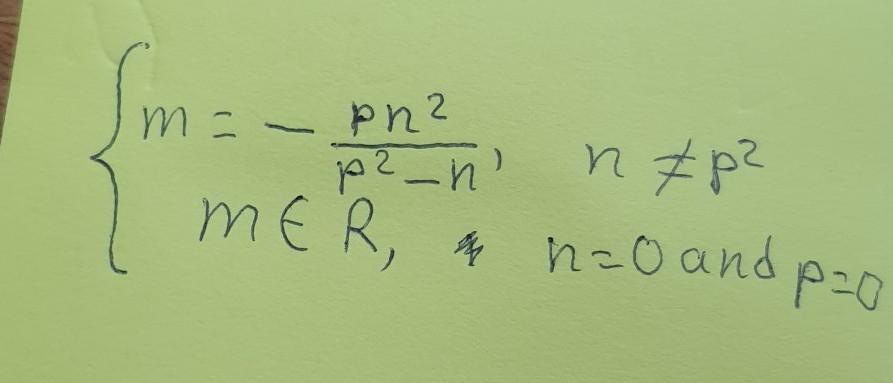 m = - pn²/(p² - n), n ≠ p²
m ∈ R, n=0 and p=0